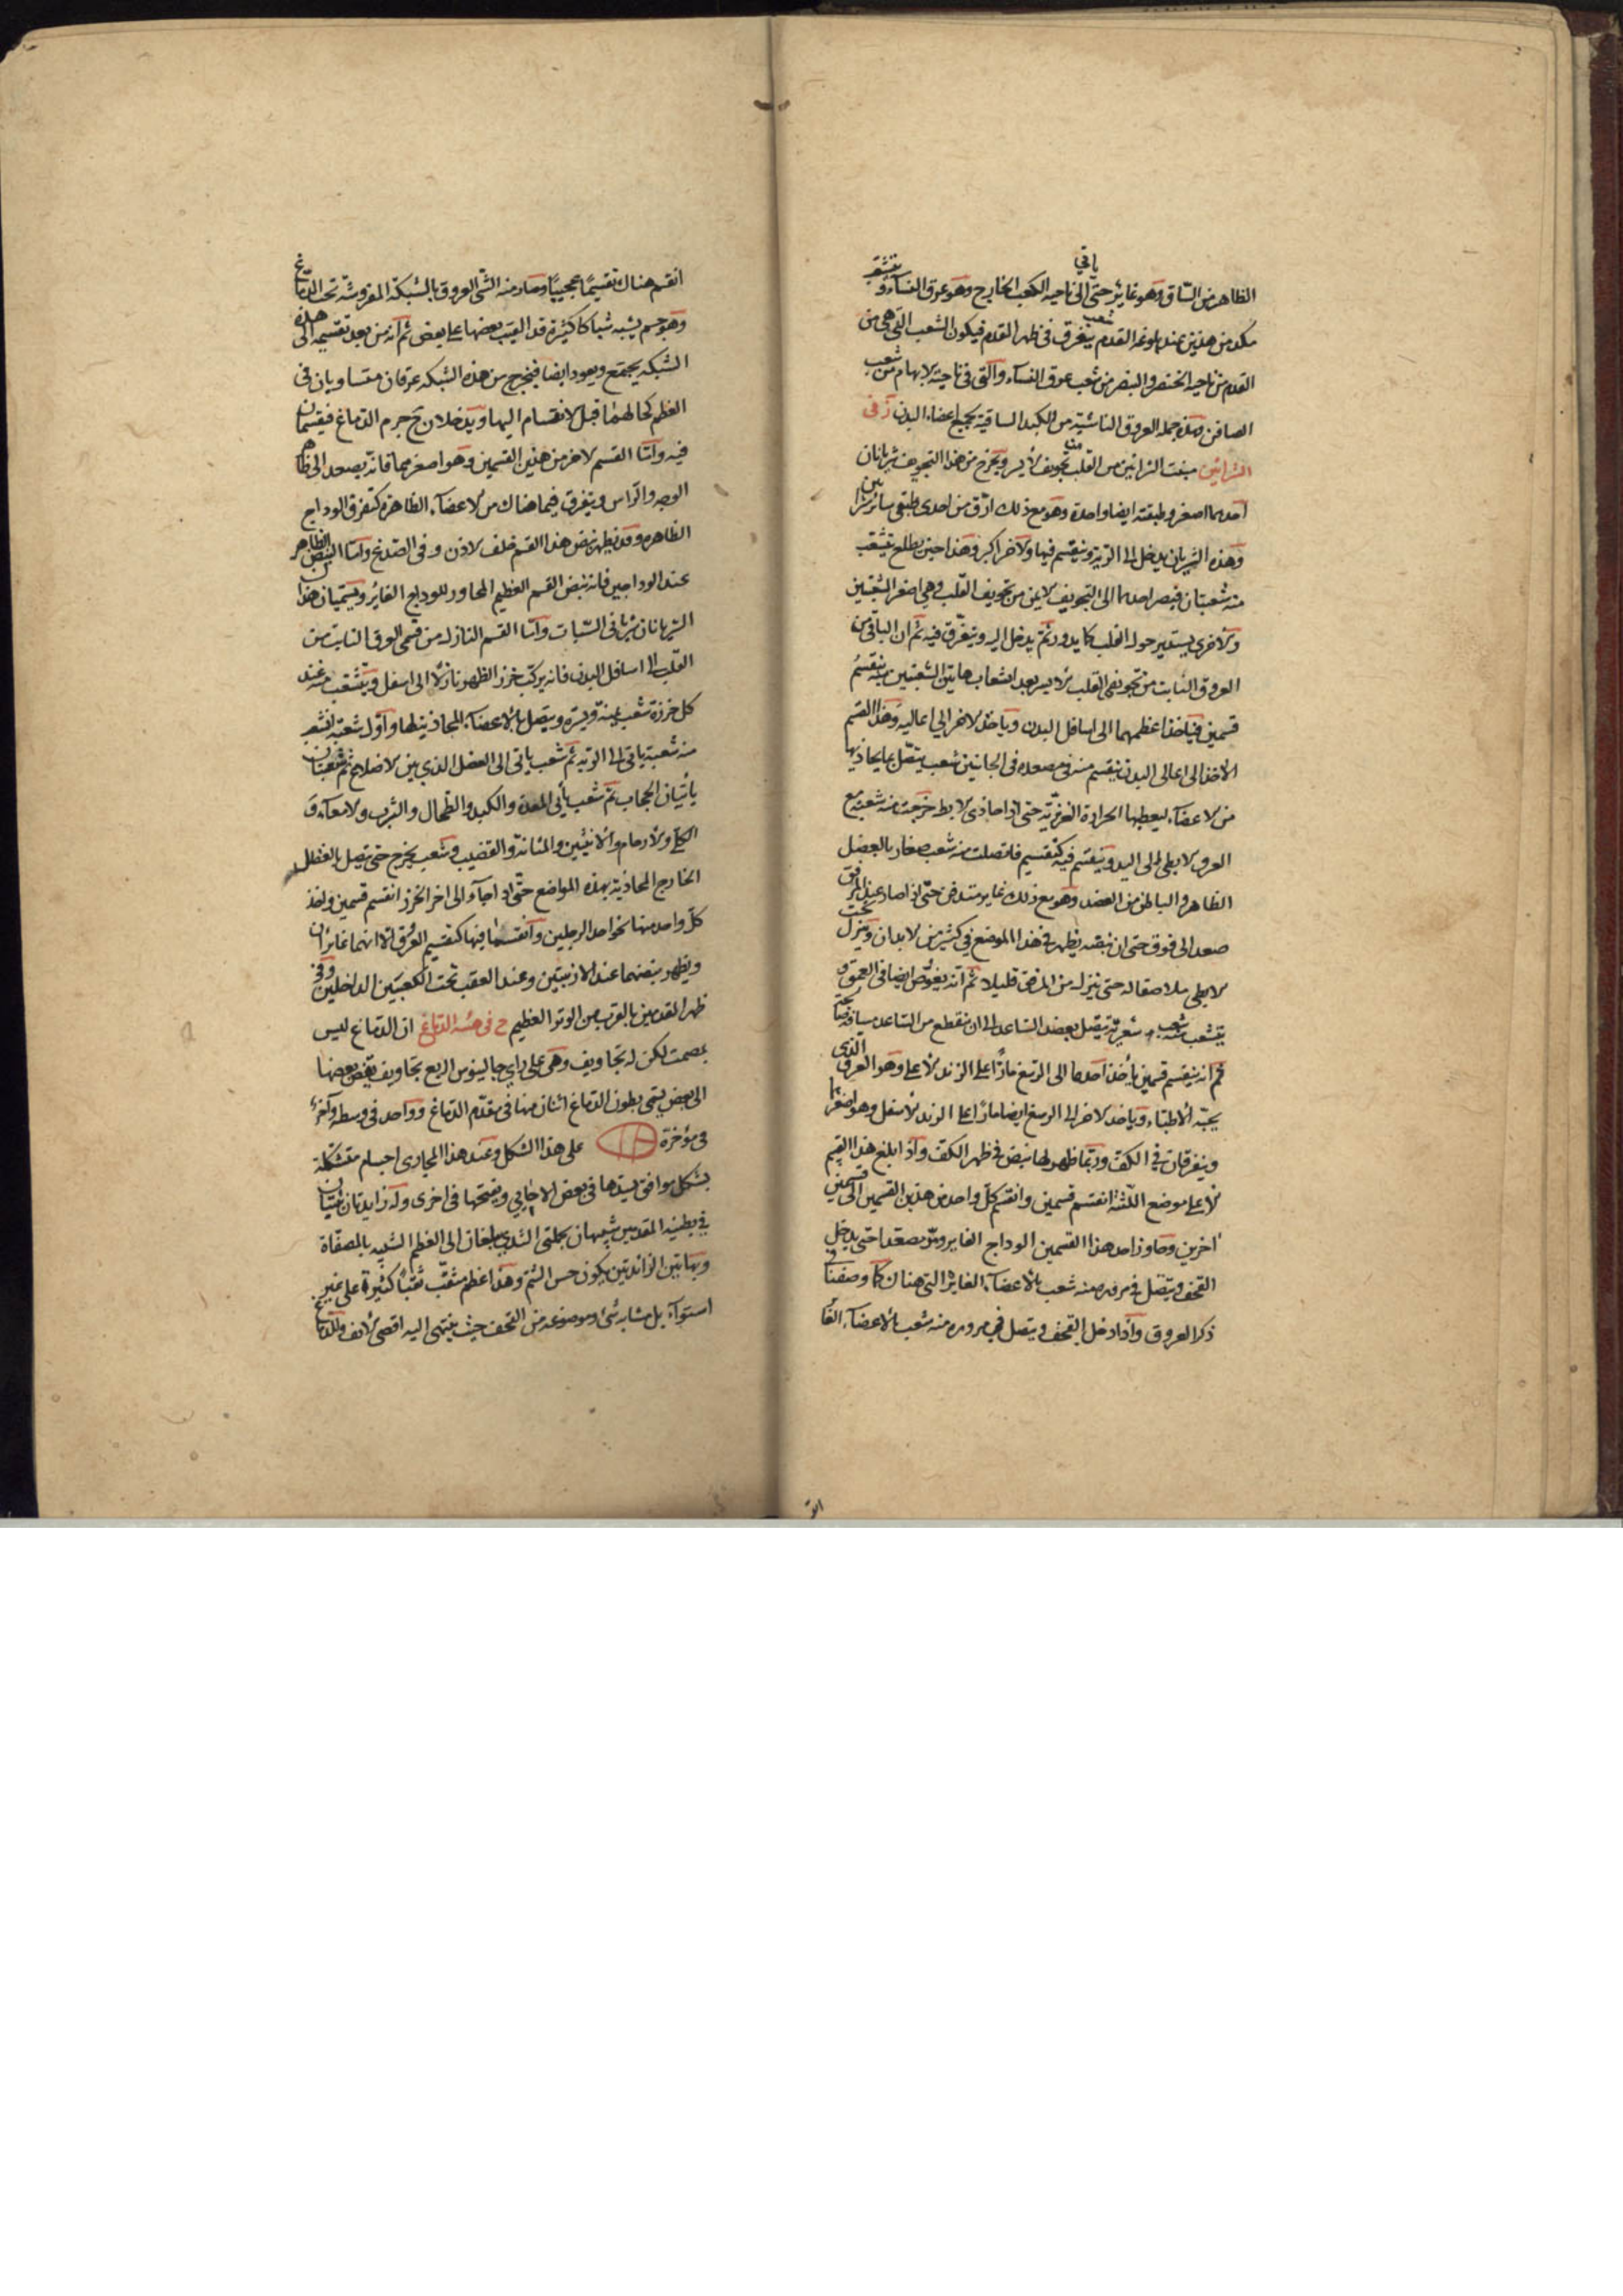 الظاهر من الساق وهو غاير حتى ياتي الى ناحية الكعب الخارج وهو عرق النساء و يتشعب
من هذين عند بلوغه القدم شعب يتفرق في ظهر القدم فيكون الشعب التي هي من
القدم من ناحية الخنصر والبنصر من شعب عرق النساء والتي في ناحية الابهام من شعب
الصافن وهذه جملة العروق الناشئة من الكبد الساقية بجميع اعضاء البدن ز في
الشرائين منبت الشرائين من القلب من تجويفه الايسر ويخرج من هذا التجويف شريانان
احدهما اصغر وطبقته ايضا واحدة وهو مع ذلك ارق من احدى طبقتي سائر
وهذه الشريان يدخل الى الرية وينقسم فيها والاخر اكبر وهذا حين يطلع يتشعب
منه شعبتان فيصير احدهما الى التجويف الايمن من تجويف القلب وهي اصغر الشعبتين
والاخرى يستدير حول القلب كما يدور ثم يدخل اليه ويتفرق فيه ثم ان الباقي من
العروق النابت من تجويفي القلب الايسر بعد انشعاب هاتين الشعبتين منه ينقسم
قسمين فياخذ اعظمهما الى اسافل البدن وياخذ الاخر الى اعاليه وهذا القسم
الاخذ الى اعالي البدن ينقسم منه في مصعده في الجانبين شعب يتصل بما يحاذيها
من الاعضاء ليعطيها الحرارة الغريزية حتى اذا حاذى الابط خرجت منه شعبة مع
العرق الابطي الى اليد وينقسم فيه كتقسيم فاتصلت منه شعب صغار بالعضل
الظاهر والباطن من العضد وهو مع ذلك غاير مندفن حتى اذا صار عند المرفق
صعد الى فوق حتى ان نبضه يظهر في هذا الموضع في كثير من الابدان وينزل تحت
الابطي ملاصقا له حتى ينزل من المرفق قليلا ثم انه يغوص ايضا في العمق و
يتشعب منه شعب شعرية يتصل بعضل الساعد الى ان ينقطع من الساعد مسافة
ثم انه ينقسم قسمين ياخذ احدهما الى الرسغ مارًا على الزند الاعلى وهو العرق الذي
يجسه الاطباء وياخذ الاخر الى الرسغ ايضا مارًا على الزند الاسفل وهو اصغرهما
ويتفرقان في الكف وربما ظهر لها نبض في ظهر الكف واذا بلغ هذا القسم
الاعلى موضع اللثة انقسم قسمين وانقسم كل واحد من هذين القسمين الى قسمين
اخرين وجاوز احد هذا القسمين الوداج الغاير ومر مصعدا حتى يدخل
القحف ويتصل في مروره منه شعب بالاعضاء الغايرة التي هناك كما وصفنا في
ذكر العروق واذا دخل القحف ويتصل في مروره منه شعب بالاعضاء الغا
انقسم هناك تقسيمًا عجيبًا وصار منه الشئ العروق بالشبكة المفروشة تحت الدماغ
وهو جسم يشبه شباكا كثيرة قد القيت بعضها على بعض ثم انه من بعد تقسيمه الى هذه
الشبكة يجتمع ويعود ايضا فيخرج من هذه الشبكة عرقان متساويان في
العظم كحالهما قبل الانقسام اليها ويدخلان ح جرم الدماغ فيقسمان
فيه واما القسم الاخر من هذين القسمين وهو اصغرهما فانه يصعد الى ظاهر
الوجه والراس ويتفرق فيما هناك من الاعضاء الظاهرة كتفرق الوداج
الظاهر وقد يظهر نبض هذا القسم خلف الاذن و في الصدغ واما النبض الظاهر
عند الوداجين فانه نبض القسم العظيم المجاور للوداج الغاير ويسميان هذا
الشريانان شرياني السبات واما القسم النازل من قسمي العرق النابت من
القلب الى اسافل البدن فانه يركب خرز الظهر نازلًا الى اسفل ويتشعب منه عند
كل خرزة شعب يمنة ويسرة ويتصل بالاعضاء المحاذية لها واول شعبة تتشعب
منه شعبة ياتي الى الرية ثم شعب ياتي الى العضل الذي بين الاضلاع ثم شعبتان
ياتيان الحجاب ثم شعب ياتي المعدة والكبد والطحال والثرب والامعاء و
الكلى والارحام والانثيين والمثانة والقضيب وشعب يخرج حتى يتصل بالعضل
الخارج المحاذية بهذه المواضع حتى اذا جاء الى اخر الخرز انقسم قسمين واخذ
كل واحد منها نحو احد الرجلين وانقسما فيها كتقسيم العروق الا انهما غايران
ويظهر نبضهما عند الاربيتين وعند العقب تحت الكعبين الداخلين وفي
ظهر القدمين بالقرب من الوتر العظيم ح في هيئة الدماغ ان الدماغ ليس
بمصمت لكن له تجاويف وهي على راي جالينوس اربع تجاويف يفضي بعضها
الى بعض يسمى بطون الدماغ اثنان منها في مقدم الدماغ وواحد في وسطه واخر
في مؤخره على هذا الشكل وعند هذا المجاري اجسام متشكلة
بشكل موافق يسدها في بعض الاحايين ويفتحها في اخرى وله زايدتان ثابتتان
في بطنيه المقدمين شبيهان بحلمتي الثدي يبلغان الى العظم الشبيه بالمصفاة
وبهاتين الزائدتين يكون حس الشم وهذا عظم مثقب ثقبًا كثيرة على غير
استواء بل مشابه شئ وموضوعه من القحف حيث ينتهي اليه اقصى الانف وللدماغ